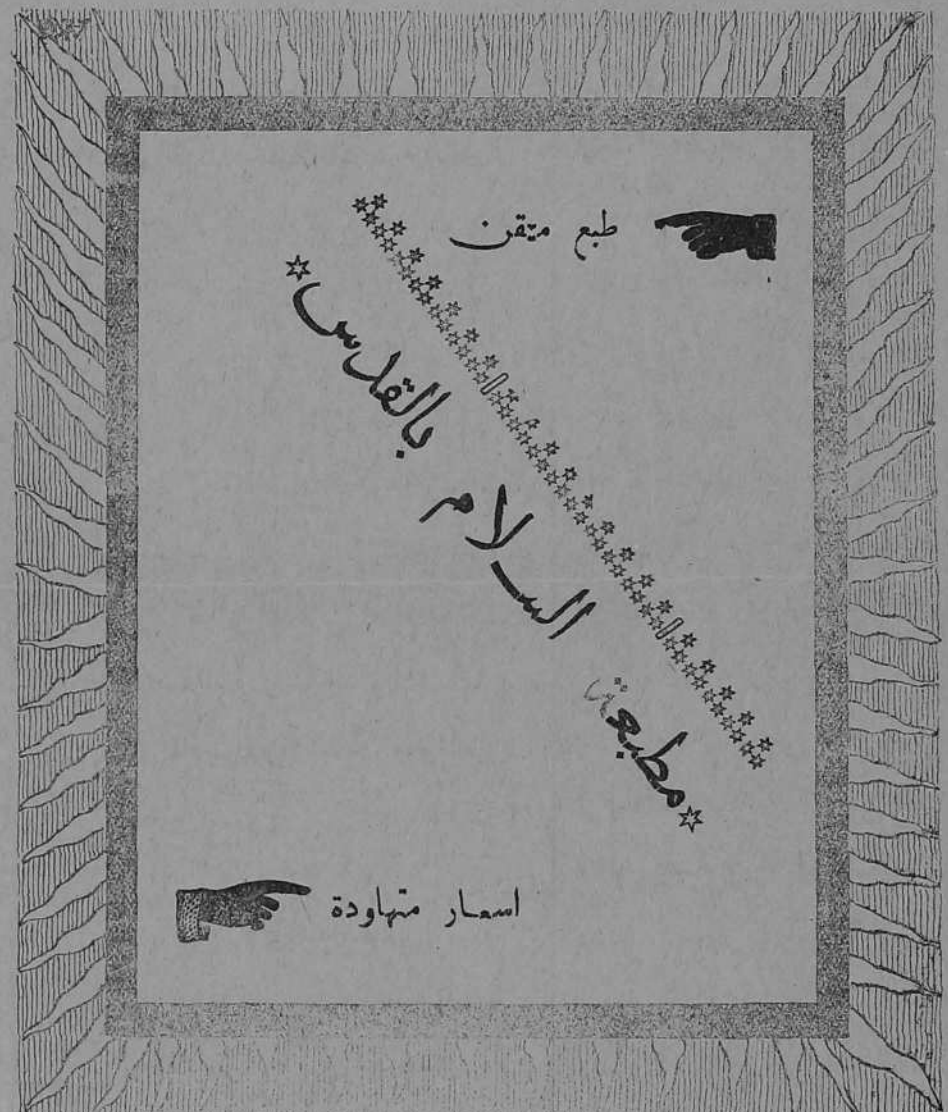 طبع ميقن
مطبعة السلام بالقدس
اسعار متهاودة